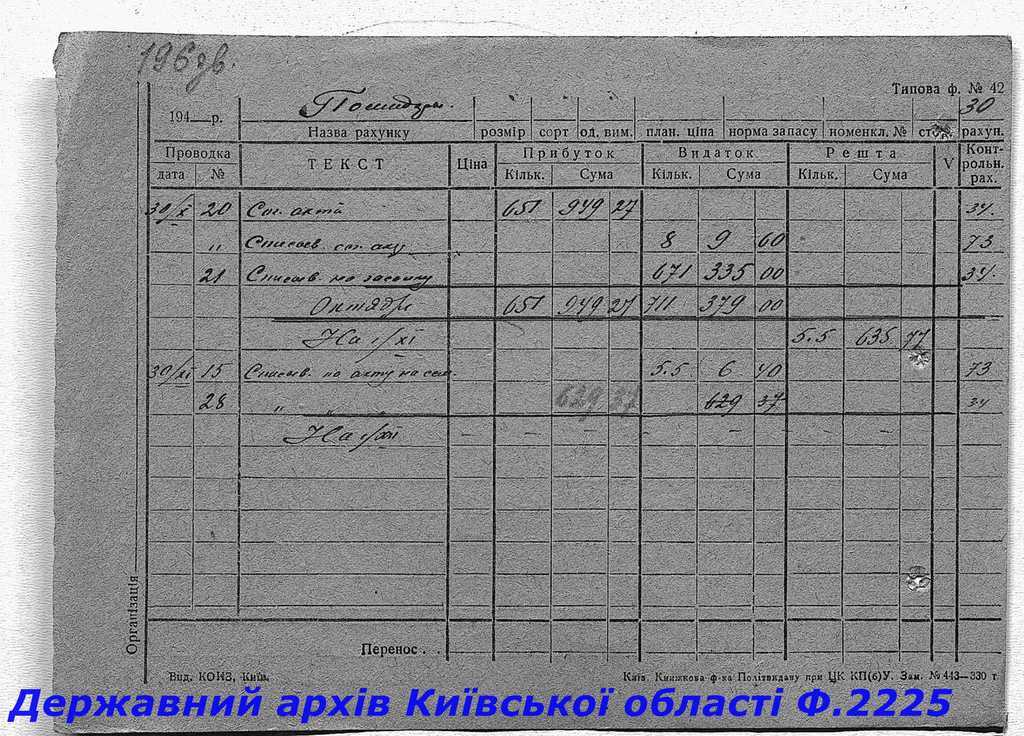 196 зв.
Типова ф. № 42
194 р. Помидоры. 30
Назва рахунку розмір сорт од. вим. план. ціна норма запасу номенкл. № рахун.
Проводка ТЕКСТ Ціна Прибуток Видаток Решта V Конт-рольн. рах.
дата № Кільк. Сума Кільк. Сума Кільк. Сума
30/X 20 акта 651 949 27 34.
" Списыв. 8 9 60 73
21 Списыв. на засолку 671 335 00 34.
Октябрь 651 949 27 711 379 00
На 1/XI 5.5 635 77
30/XI 15 Списыв. по акту 5.5 6 40 73
28 " 629 37 629 37 34
На 1/XII – – – – – – – – –
Організація
Перенос . .
Вид. КОИЗ, Київ.
Київ. Книжкова ф-ка Політвидаву при ЦК КП(б)У. Зам. № 443—330 т.
Державний архів Київської області Ф.2225